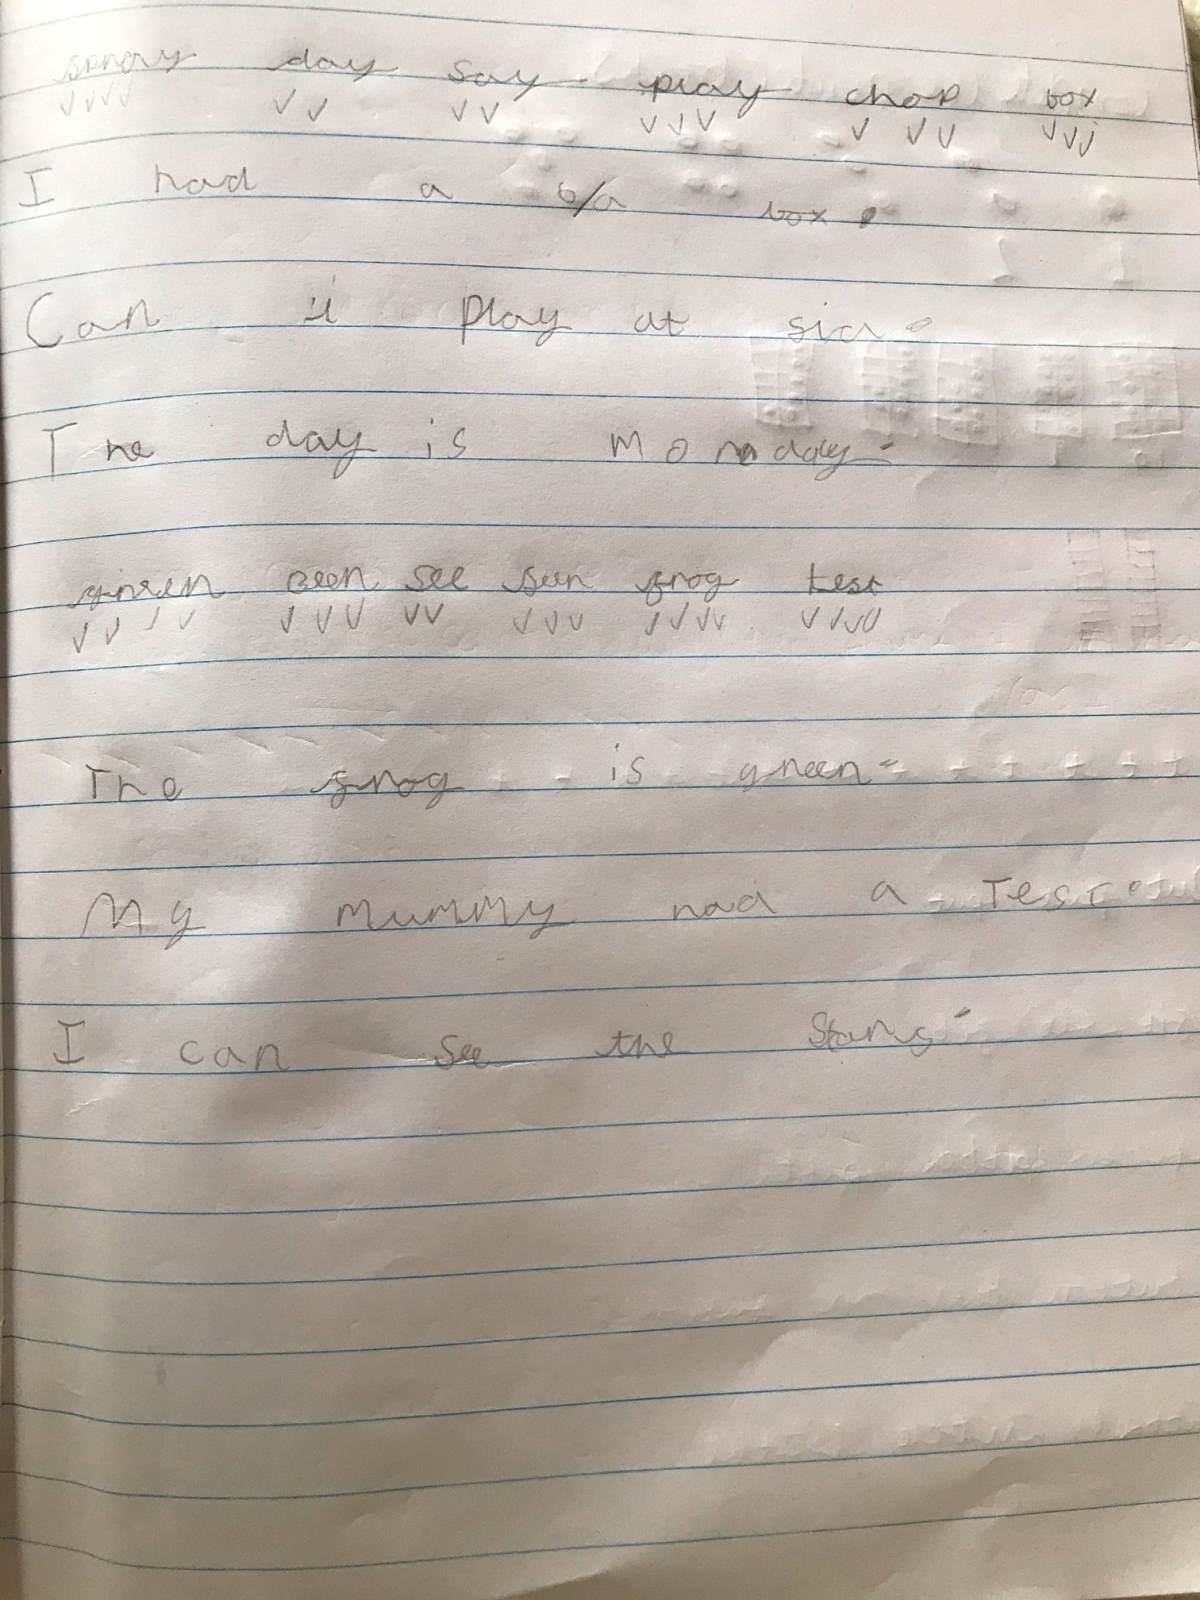 spray day say play chop box
I had a box.
Can i play at
The day is Monday.
green been see seen frog test
The frog is green.
My Mummy had a Test.
I can see the Stars.